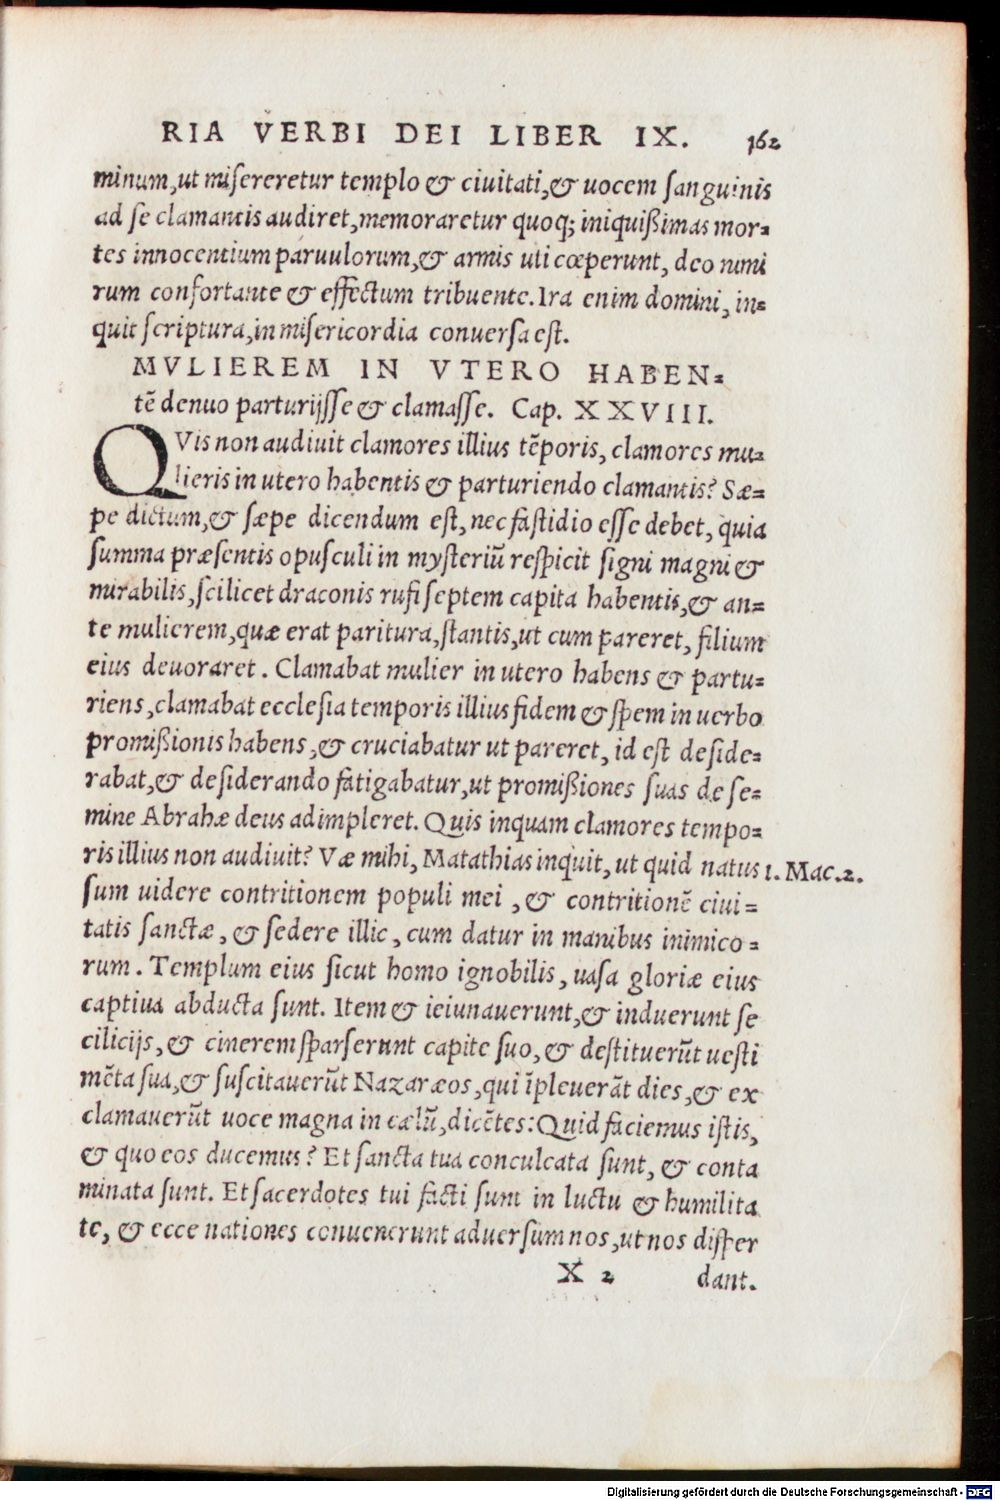 RIA VERBI DEI LIBER IX. 162
minum, ut misereretur templo & ciuitati, & uocem sanguinis
ad se clamantis audiret, memoraretur quoq; iniquißimas mor=
tes innocentium paruulorum, & armis uti cœperunt, deo nimi
rum confortante & effectum tribuente. Ira enim domini, in=
quit scriptura, in misericordia conuersa est.
MVLIEREM IN VTERO HABEN=
tē denuo parturijsse & clamasse. Cap. XXVIII.
QVis non audiuit clamores illius tēporis, clamores mu=
lieris in utero habentis & parturiendo clamantis? Sæ=
pe dictum, & sæpe dicendum est, nec fastidio esse debet, quia
summa præsentis opusculi in mysteriū respicit signi magni &
mirabilis, scilicet draconis rufi septem capita habentis, & an=
te mulierem, quæ erat paritura, stantis, ut cum pareret, filium
eius deuoraret. Clamabat mulier in utero habens & partu=
riens, clamabat ecclesia temporis illius fidem & spem in uerbo
promißionis habens, & cruciabatur ut pareret, id est deside=
rabat, & desiderando fatigabatur, ut promißiones suas de se=
mine Abrahæ deus adimpleret. Quis inquam clamores tempo=
ris illius non audiuit? Væ mihi, Matathias inquit, ut quid natus 1. Mac. 2.
sum uidere contritionem populi mei, & contritionē ciui=
tatis sanctæ, & sedere illic, cum datur in manibus inimico=
rum. Templum eius sicut homo ignobilis, uasa gloriæ eius
captiua abducta sunt. Item & ieiunauerunt, & induerunt se
cilicijs, & cinerem sparserunt capite suo, & destituerūt uesti
mēta sua, & suscitauerūt Nazaræos, qui īpleuerāt dies, & ex
clamauerūt uoce magna in cælū, dicētes: Quid faciemus istis,
& quo eos ducemus? Et sancta tua conculcata sunt, & conta
minata sunt. Et sacerdotes tui facti sunt in luctu & humilita
te, & ecce nationes conuenerunt aduersum nos, ut nos disper
X 2 dant.
Digitalisierung gefördert durch die Deutsche Forschungsgemeinschaft - DFG